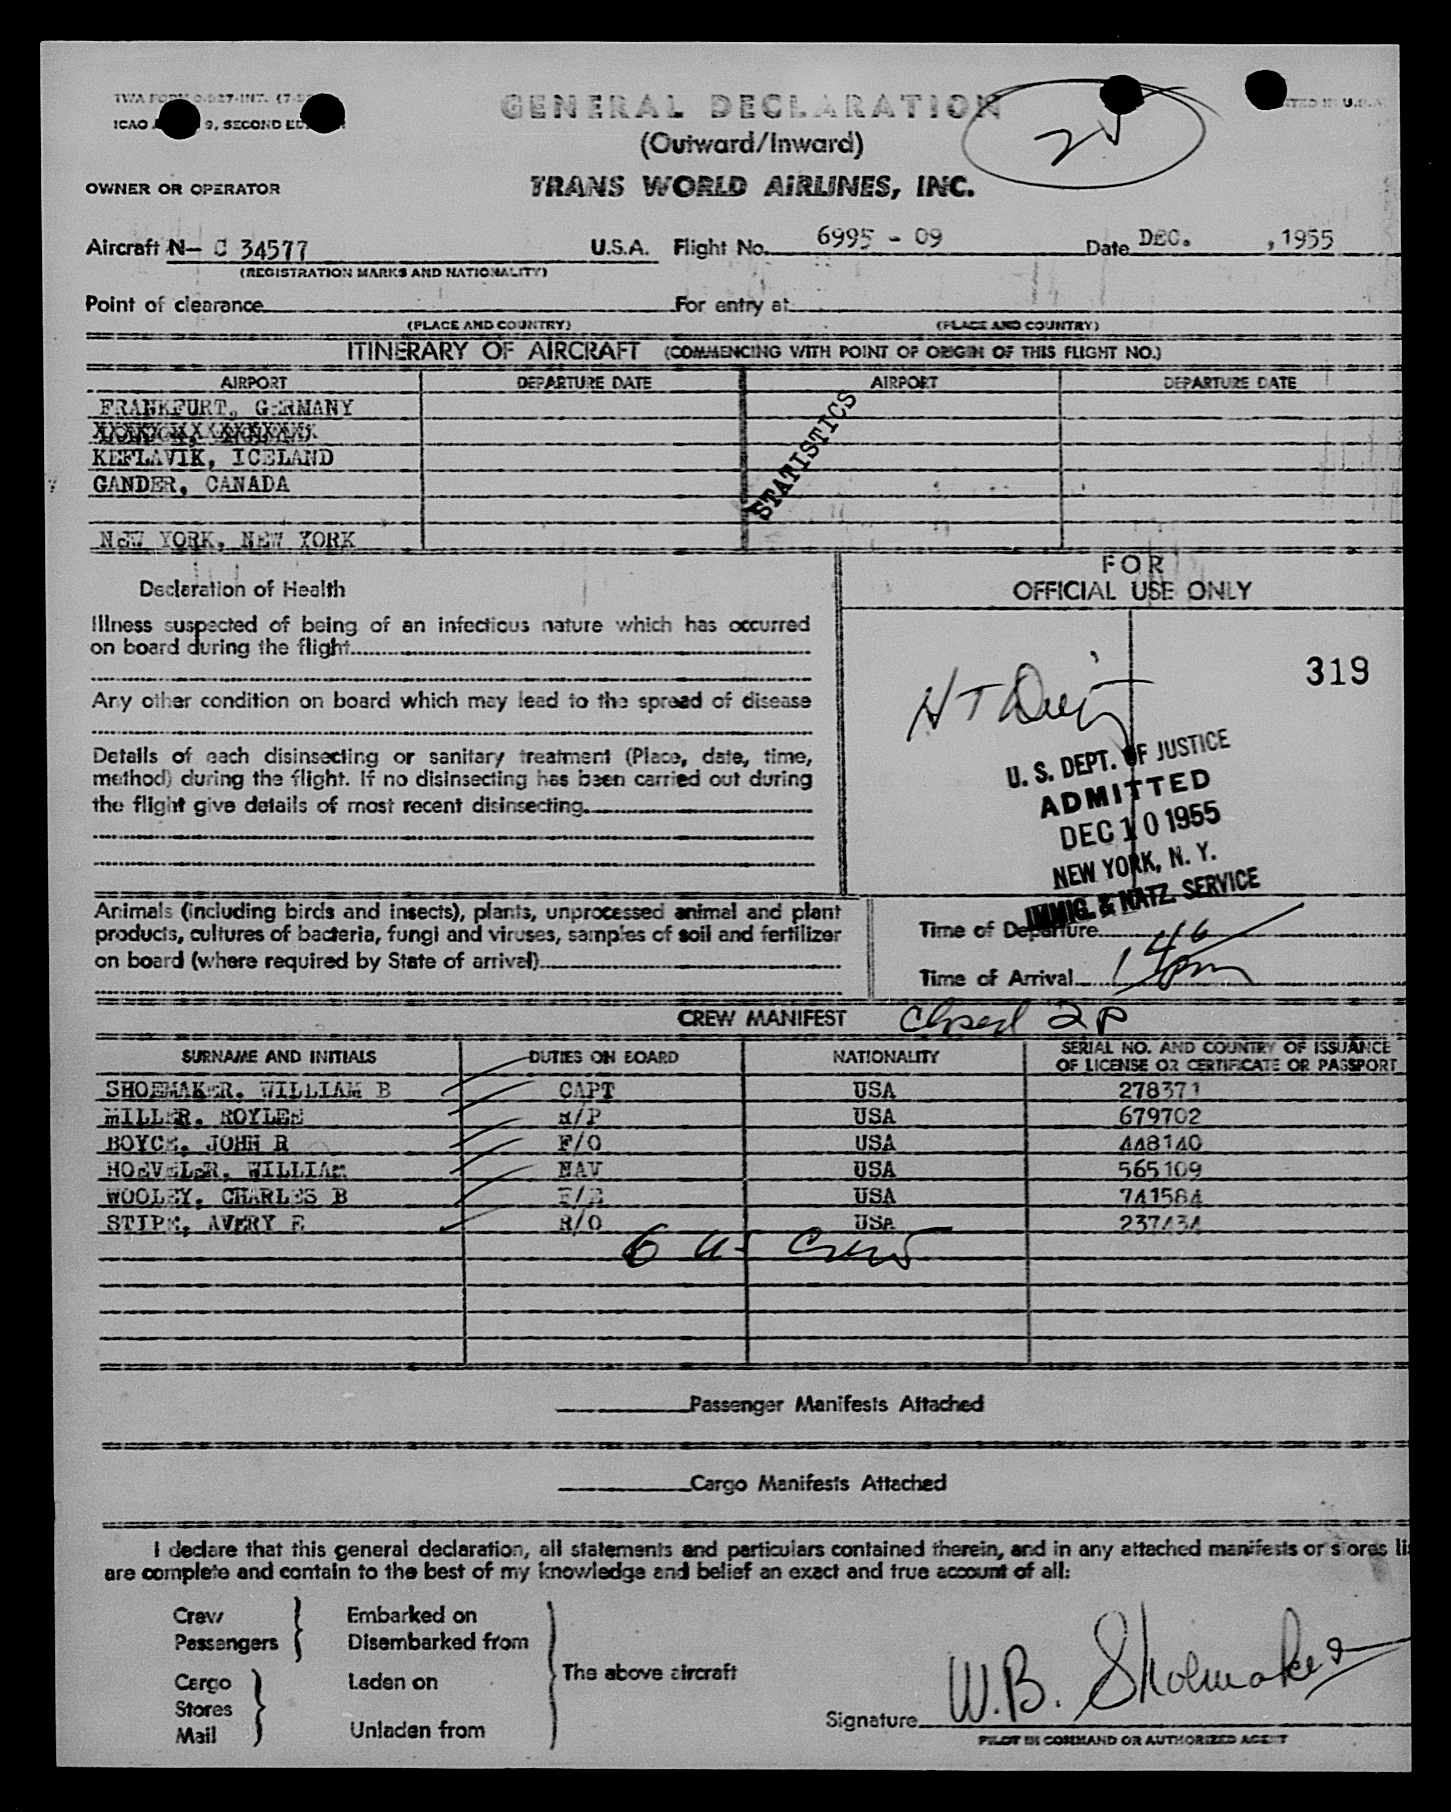 TWA FORM
GENERAL DECLARATION
ICAO 9, SECOND
(Outward/Inward)
2
OWNER OR OPERATOR
TRANS WORLD AIRLINES, INC.
Aircraft N- C 34577 U.S.A. Flight No. 6995 - 09 Date DEC. , 1955
(REGISTRATION MARKS AND NATIONALITY)
Point of clearance For entry at
(PLACE AND COUNTRY) (PLACE AND COUNTRY)
ITINERARY OF AIRCRAFT (COMMENCING WITH POINT OF ORIGIN OF THIS FLIGHT NO.)
AIRPORT DEPARTURE DATE AIRPORT DEPARTURE DATE
FRANKFURT, GERMANY
KEFLAVIK, ICELAND
GANDER, CANADA
NEW YORK, NEW YORK
STATISTICS
Declaration of Health
Illness suspected of being of an infectious nature which has occurred
on board during the flight
Any other condition on board which may lead to the spread of disease
Details of each disinsecting or sanitary treatment (Place, date, time,
method) during the flight. If no disinsecting has been carried out during
the flight give details of most recent disinsecting.
FOR
OFFICIAL USE ONLY
319
U. S. DEPT. OF JUSTICE
ADMITTED
DEC 10 1955
NEW YORK, N. Y.
IMMIG. & NATZ. SERVICE
Animals (including birds and insects), plants, unprocessed animal and plant
products, cultures of bacteria, fungi and viruses, samples of soil and fertilizer
on board (where required by State of arrival)
Time of Departure
Time of Arrival 146 pm
CREW MANIFEST Closed 2P
SURNAME AND INITIALS DUTIES ON BOARD NATIONALITY SERIAL NO. AND COUNTRY OF ISSUANCE
OF LICENSE OR CERTIFICATE OR PASSPORT
SHOEMAKER, WILLIAM B CAPT USA 278371
MILLER, ROYLEE R/P USA 679702
BOYCE, JOHN R F/O USA 448140
HOEVELER, WILLIAM NAV USA 565109
WOOLEY, CHARLES B F/E USA 741584
STIPE, AVERY E R/O USA 237434
6 US Crew
Passenger Manifests Attached
Cargo Manifests Attached
I declare that this general declaration, all statements and particulars contained therein, and in any attached manifests or stores li
are complete and contain to the best of my knowledge and belief an exact and true account of all:
Crew Embarked on
Passengers Disembarked from
The above aircraft
Cargo Laden on
Stores
Mail Unladen from
Signature W.B. Shoemaker
PILOT IN COMMAND OR AUTHORIZED AGENT